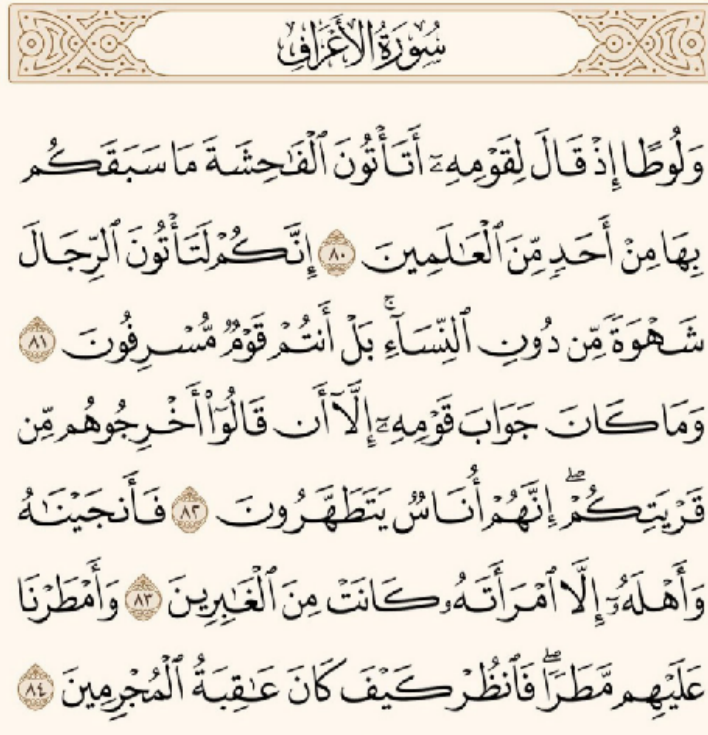 سُورَةُ الأَعْرَافِ
وَلُوطًا إِذْ قَالَ لِقَوْمِهِۦٓ أَتَأْتُونَ ٱلْفَٰحِشَةَ مَا سَبَقَكُم
بِهَا مِنْ أَحَدٍ مِّنَ ٱلْعَٰلَمِينَ ٨٠ إِنَّكُمْ لَتَأْتُونَ ٱلرِّجَالَ
شَهْوَةً مِّن دُونِ ٱلنِّسَآءِۚ بَلْ أَنتُمْ قَوْمٌ مُّسْرِفُونَ ٨١
وَمَا كَانَ جَوَابَ قَوْمِهِۦٓ إِلَّآ أَن قَالُوٓا۟ أَخْرِجُوهُم مِّن
قَرْيَتِكُمْۖ إِنَّهُمْ أُنَاسٌ يَتَطَهَّرُونَ ٨٢ فَأَنجَيْنَٰهُ
وَأَهْلَهُۥٓ إِلَّا ٱمْرَأَتَهُۥ كَانَتْ مِنَ ٱلْغَٰبِرِينَ ٨٣ وَأَمْطَرْنَا
عَلَيْهِم مَّطَرًاۖ فَٱنظُرْ كَيْفَ كَانَ عَٰقِبَةُ ٱلْمُجْرِمِينَ ٨٤